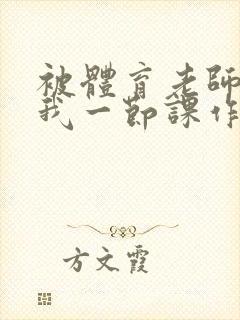 被體育老師
我一節課作
方文霞